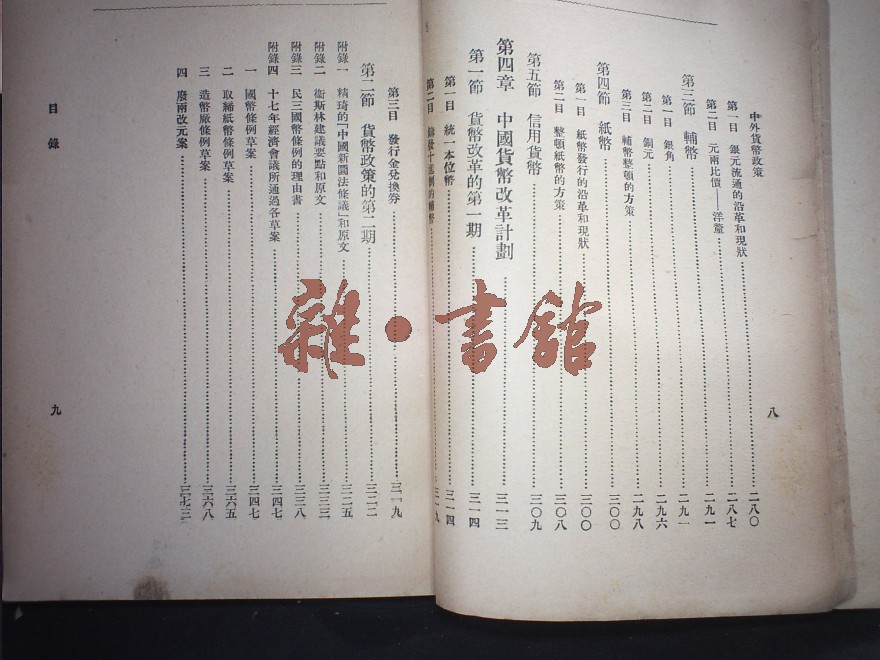 中外貨幣政策
第一目　銀元流通的沿革和現狀……二八〇
第二目　元兩比價——洋釐……二八七
第三節　輔幣……二九一
第一目　銀角……二九一
第二目　銅元……二九六
第三目　輔幣整頓的方策……二九八
第四節　紙幣……三〇〇
第一目　紙幣發行的沿革和現狀……三〇〇
第二目　整頓紙幣的方策……三〇八
第五節　信用貨幣……三〇九
第四章　中國貨幣改革計劃……三一三
第一節　貨幣改革的第一期……三一四
第一目　統一本位幣……三一四
第二目　十進制的輔幣
八
第三目　發行金兌換劵……三一九
第二節　貨幣政策的第二期……三二二
附錄一　精琦的「中國新圜法條議」和原文……三二五
附錄二　衞斯林建議要點和原文……三三三
附錄三　民三國幣條例的理由書……三三八
附錄四　十七年經濟會議所通過各草案……三四七
一　國幣條例草案……三四七
二　取締紙幣條例草案……三六五
三　造幣廠條例草案……三六八
四　廢兩改元案……三七三
目錄
九
雜·書舘